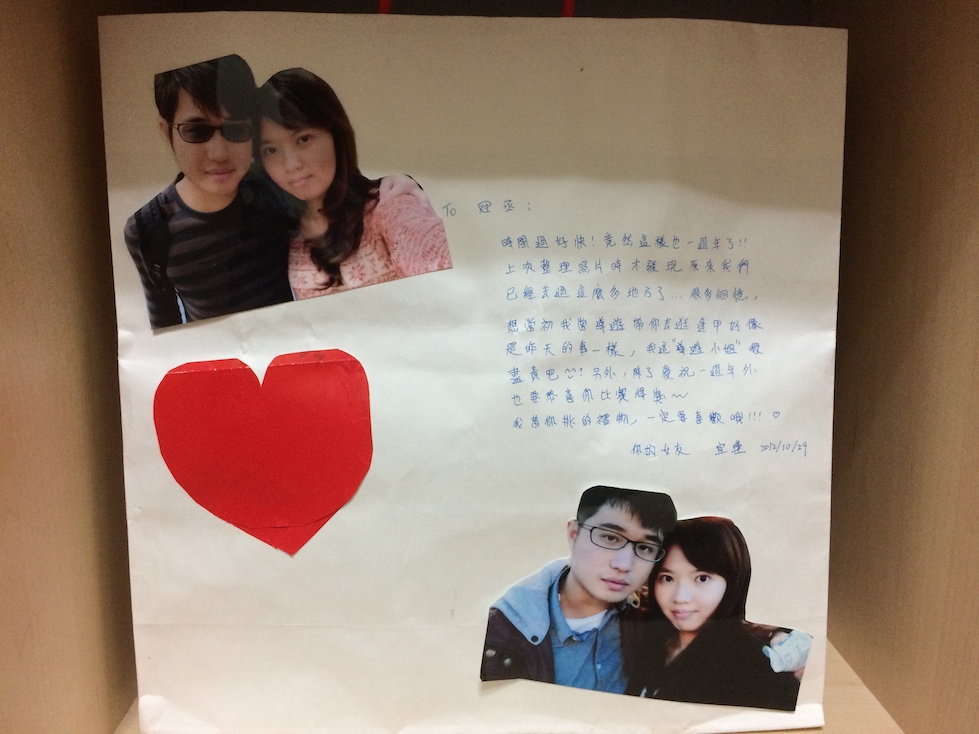 To 冠丞：
時間過好快！竟然這樣也一週年了!!
上次整理照片時才發現原來我們
已經去過這麼多地方了...很多回憶,
想當初我當導遊帶你去逛逢甲好像
是昨天的事一樣，我這"導遊小姐"很
盡責吧^^? 另外，除了慶祝一週年外
也要恭喜你比賽得獎~
我幫你挑的禮物，一定要喜歡哦!!! ♡
你的女友 宜蓁 2012/10/29